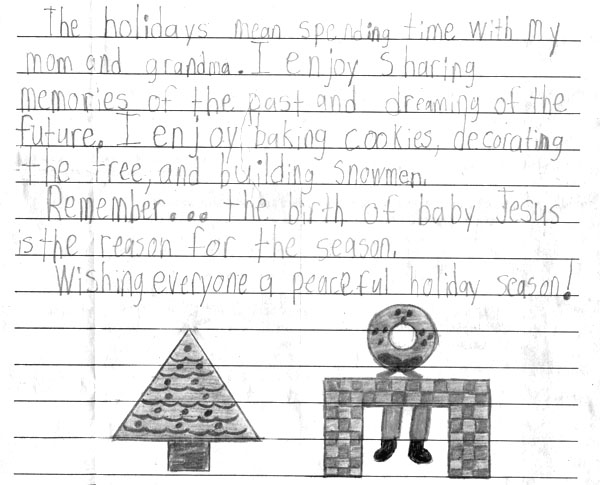 The holidays mean spending time with my
mom and grandma. I enjoy sharing
memories of the past and dreaming of the
future. I enjoy baking cookies, decorating
the tree, and building snowmen.
Remember... the birth of baby Jesus
is the reason for the season.
Wishing everyone a peaceful holiday season!